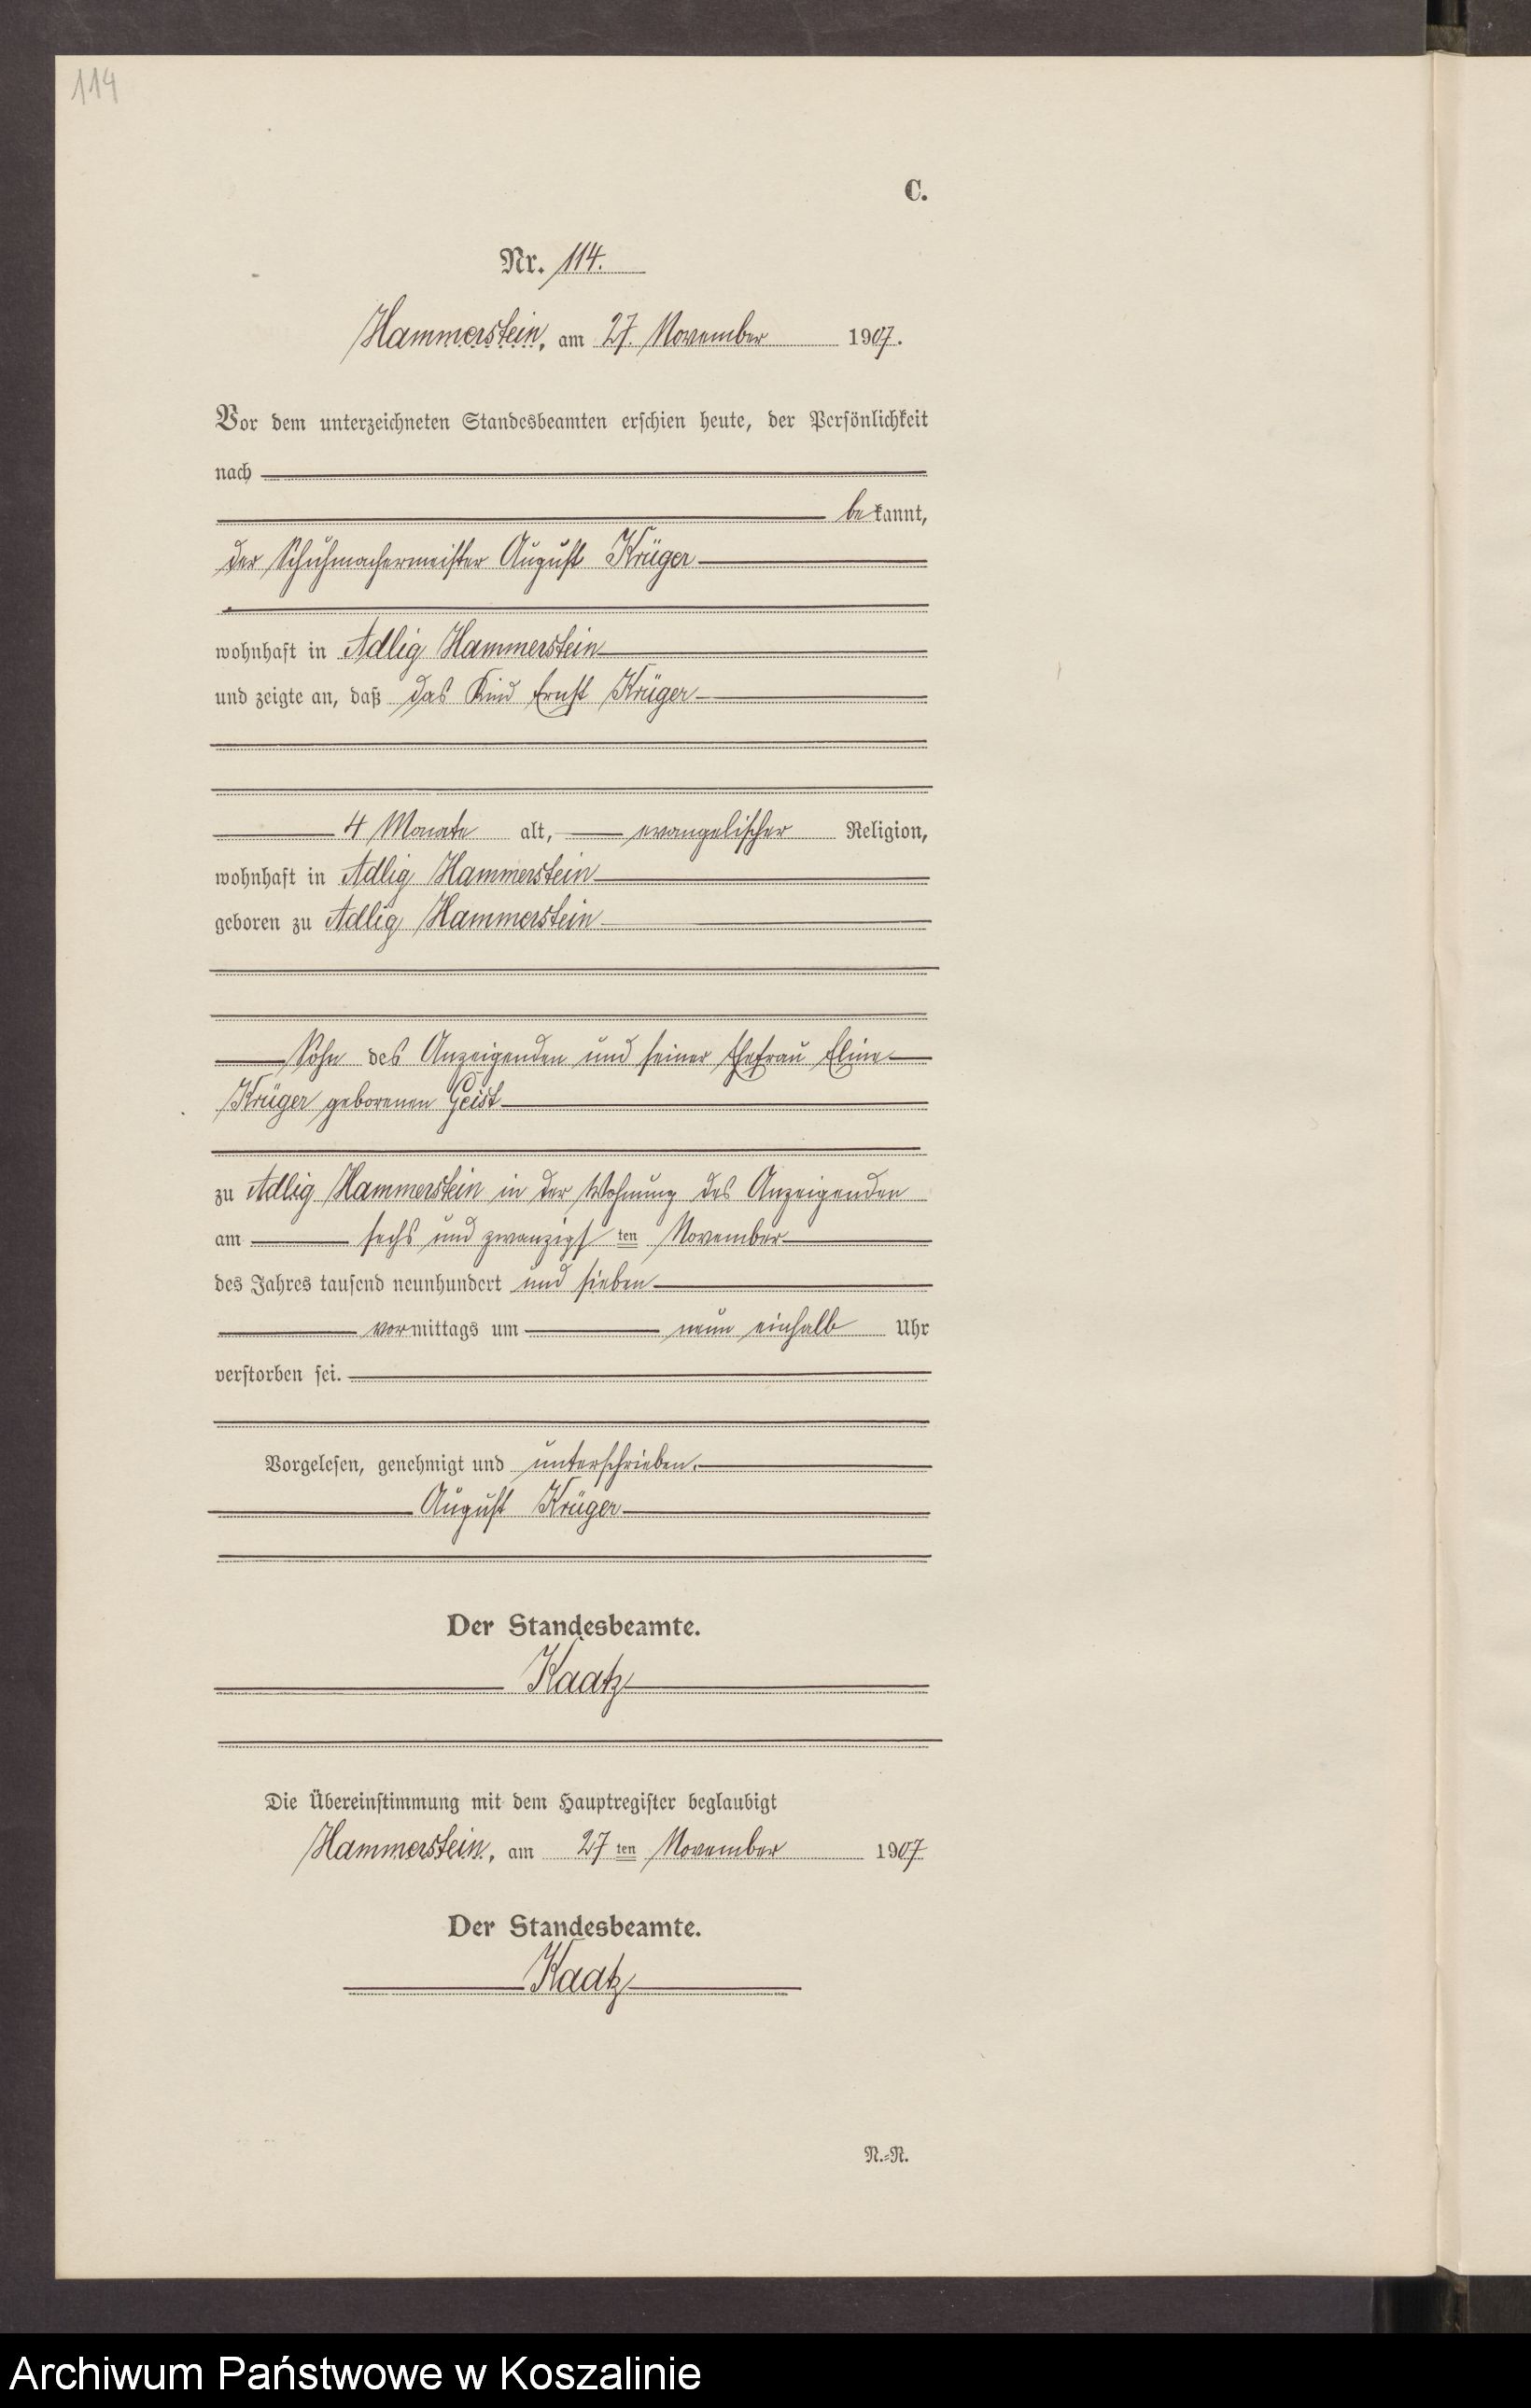 114
C.
Nr. 114.
Hammerstein, am 27. November 1907.
Vor dem unterzeichneten Standesbeamten erschien heute, der Persönlichkeit
nach
bekannt,
der Schuhmachermeister August Krüger
wohnhaft in Adlig Hammerstein
und zeigte an, daß das Kind Ernst Krüger
4 Monate alt, evangelischer Religion,
wohnhaft in Adlig Hammerstein
geboren zu Adlig Hammerstein
Sohn des Anzeigenden und seiner Ehefrau Eline
Krüger geborenen Geist
zu Adlig Hammerstein in der Wohnung des Anzeigenden
am sechs und zwanzigsten November
des Jahres tausend neunhundert und sieben
vormittags um neun einhalb Uhr
verstorben sei.
Vorgelesen, genehmigt und unterschrieben.
August Krüger
Der Standesbeamte.
Kaatz
Die Übereinstimmung mit dem Hauptregister beglaubigt
Hammerstein, am 27ten November 1907
Der Standesbeamte.
Kaatz
N.=N.
Archiwum Państwowe w Koszalinie